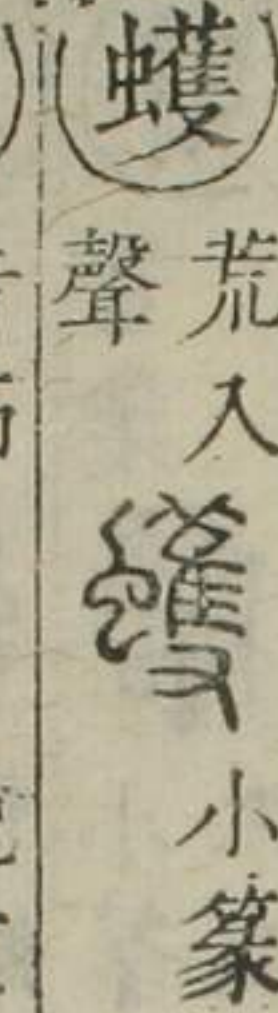 蠖
荒入
聲
蠖
小篆